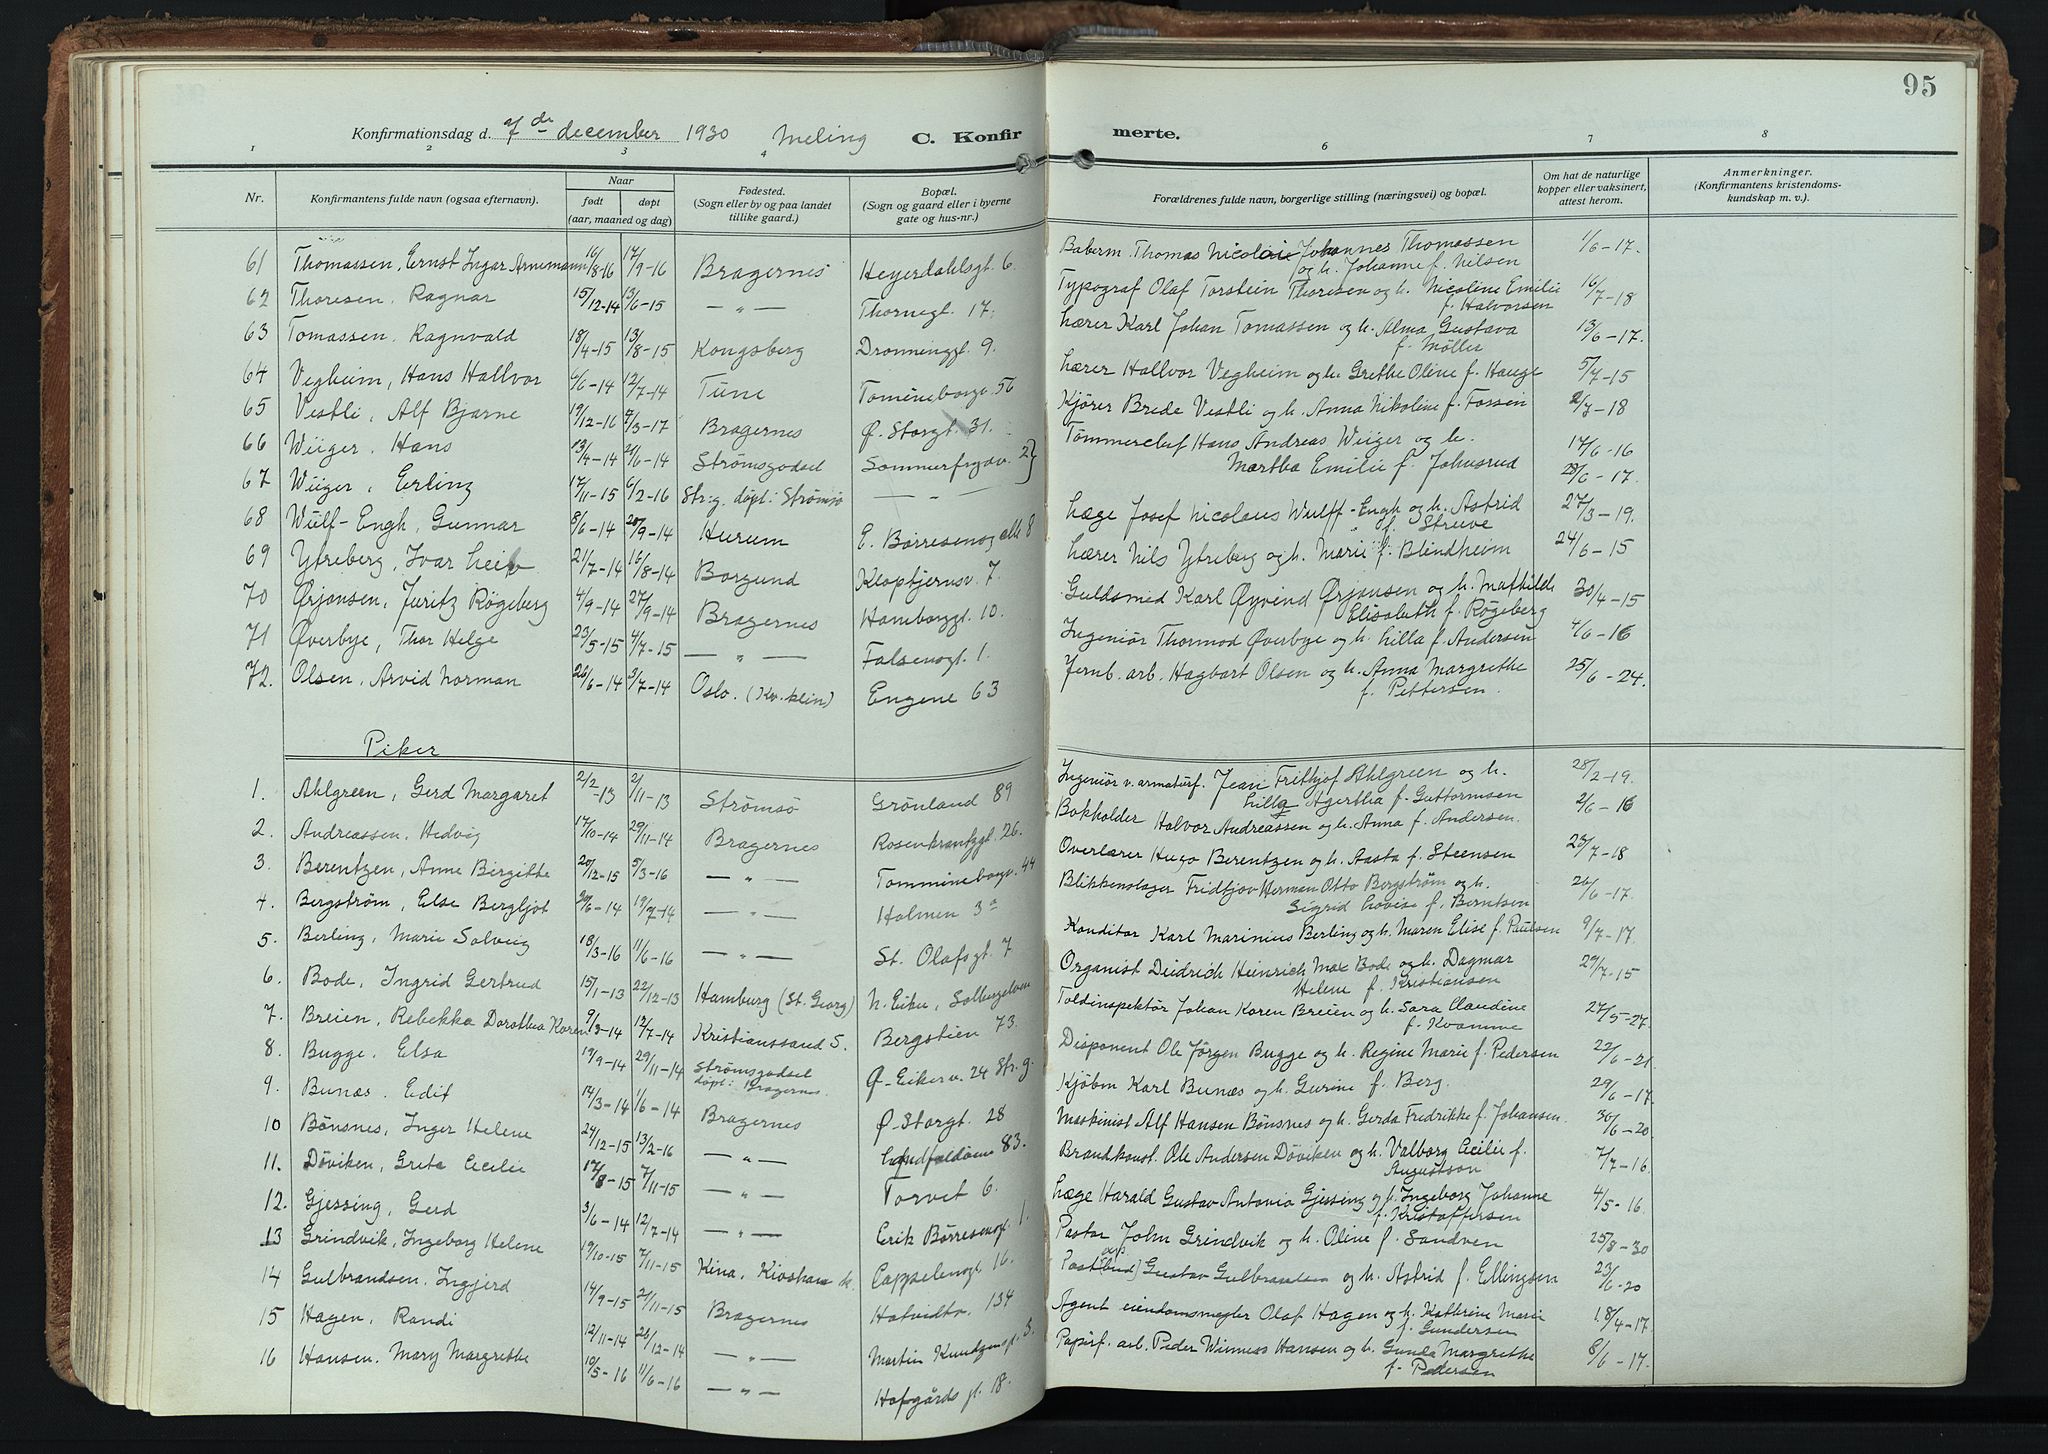 95
Konfirmationsdag d. 7de december 1930 Meling C. Konfirmerte.
1 2 3 4 6 7 8
Nr. Konfirmantens fulde navn (ogsaa efternavn). Naar født døpt (aar, maaned og dag) Fødested. (Sogn eller by og paa landet tillike gaard.) Bopæl. (Sogn og gaard eller i byerne gate og hus-nr.) Forældrenes fulde navn, borgerlige stilling (næringsvei) og bopæl. Om hat de naturlige kopper eller vaksinert, attest herom. Anmerkninger. (Konfirmantens kristendomskundskap m. v.)
61 Thomassen, Ernst Ingar Arnemann 16/8-16 17/9-16 Bragernes Heyerdahlsgt. 6. Thomas Nicolai Johannes Thomassen og h. Johanne f. Nilsen 1/6-17.
62 Thoresen, Ragnar 15/12-14 13/6-15 —„— Thornegt. 17. Typograf Olaf Torstein Thoresen og h. Nicoline Emilie f. Halvorsen 16/7-18
63 Tomassen, Ragnvald 18/4-15 13/8-15 Kongsberg Dronninggt. 9. Lærer Karl Johan Tomassen og h. Alma Gustava f. Møller 13/6-17.
64 Vegheim, Hans Hallvor 4/6-14 12/7-14 Tune Tomineborgv. 56 Lærer Hallvor Vegheim og h. Grethe Oline f. Hauge 5/7-15
65 Vestli, Alf Bjarne 19/12-16 4/3-17 Bragernes Ø. Storgt. 31. Kjører Brede Vestli og h. Anna Nikoline f. Fossen 2/7-18
66 Wiiger, Hans 13/4-14 21/6-14 Strømsgodset Sommerfrydv. 2} Tømmerchef Hans Andreas Wiiger og h. Martha Emilie f. Johnsrud 17/6-16
67 Wiiger, Erling 17/11-15 6/2-16 Str:g. døpt: Strømsø —„— 28/6-17.
68 Wülf-Engh, Gunnar 8/6-14 20/9-14 Hurum E. Børresens alle 8 Læge Josef Nicolaus Wulff-Engh og h. Astrid f. Struve 27/3-19.
69 Ytreberg, Ivar Leif 21/7-14 16/8-14 Borgund Kloptjernsv. 7. Lærer Nils Ytreberg og h. Marie f. Blindheim 24/6-15
70 Ørjansen, Juritz Røgeberg 4/9-14 27/9-14 Bragernes Hamborggt. 10. Guldsmed Karl Øyvind Ørjansen og h. Mathilde Elisabeth f. Røgeberg 30/4-15
71 Øverbye, Thor Helge 23/5-15 4/7-15 —„— Falsensgt. 1. Ingeniør Thormod Øverbye og h. Lilla f. Andersen 4/6-16
72. Olsen, Arvid Norman 26/6-14 3/7-14 Oslo. (Kv. klin) Engene 63 Jernb. arb. Hagbart Olsen og h. Anna Margrethe f. Pettersen. 25/6-24.
Piker
1. Ahlgreen, Gerd Margaret 2/2-13 2/11-13 Strømsø Grønland 89 Ingeniør v. armaturf. Jean Frithjof Ahlgreen og h. Lilly Agertha f. Guttormsen 28/2-19.
2. Andreassen, Hedvig 17/10-14 29/11-14 Bragernes Rosenkrantzgt. 26. Bokholder Halvor Andreassen og h. Anna f. Andersen. 2/6-16
3. Berentzen, Anne Birgitte 20/12-15 5/3-16 —„— Tommineborgv. 44 Overlærer Hugo Berentzen og h. Aasta f. Steensen 23/7-18
4. Bergstrøm, Else Bergljot 20/6-14 19/7-14 —„— Holmen 3a Blikkenslager Fridtjov Herman Otto Bergstrøm og h. Sigrid Lovise f. Berntsen 26/6-17.
5. Berling, Marie Solveig 18/3-16 11/6-16 —„— St. Olafsgt. 7 Konditor Karl Marinius Berling og h. Maren Elise f. Paulsen 9/7-17.
6. Bode, Ingrid Gertrud 15/1-13 22/12-13 Hamburg (St. Georg) N. Eiker, Solbergelven Organist Deidrich Heinrich Max Bode og h. Dagmar Helene f. Kristiansen 29/7-15
7. Breien, Rebekka Dorothea Koren 9/3-14 12/7-14 Kristianssand S. Bergstien 73. Toldinspektør Johan Koren Breien og h. Sara Claudine f. Kvamme 27/5-27.
8. Bugge, Elsa 19/9-14 29/11-14 Strømsgodset døpt: Bragernes. Ø-Eikerv. 24 Str. g. Disponent Ole Jørgen Bugge og h. Regine Marie f. Pedersen 22/6-21
9. Bunæs, Edit 14/3-14 1/6-14 Bragernes Ø-Storgt. 28 Kjøbm Karl Bunæs og h. Gurine f. Berg. 29/6-17.
10 Bønsnes, Inger Helene 24/12-15 13/2-16 —„— 83. Maskinist Alf Hansen Bønsnes og h. Gerda Fredrikke f. Johansen. 30/6-20
11. Døviken, Greta Cecilie 17/8-15 7/11-15 —„— Torvet 6. Brandkonst. Ole Andersen Døviken og h. Valborg Cecilie f. Augustson 7/7-16.
12. Gjessing, Gerd 3/6-14 12/7-14 —„— Erik Børresensgt. 1. Læge Harald Gustav Antonio Gjessing og h. Ingeborg Johanne f. Kristoffersen 4/5-16.
13 Grindvik, Ingeborg Helene 19/10-15 7/11-15 Kina, Cappelensgt. 16. Pastor John Grindvik og h. Oline f. Sandven 25/8-30
14 Gulbrandsen, Ingjerd 14/9-15 21/11-15 Bragernes Hotvedtv. 134 Gustav Gulbrandsen og h. Astrid f. Ellingsen 23/6-20
15 Hagen, Randi 12/11-14 26/12-14 —„— Martin Knudzensgt. 3. Agent eiendomsmegler Olaf Hagen og h. Kathrine Marie f. Gundersen 18/4-17.
16 Hansen, Mary Margrethe 10/5-16 11/6-16 —„— Hofgårds gt. 18. Papirf. arb. Peder Winnæs Hansen og h. Gunda Margrethe f. Pedersen 8/6-17.